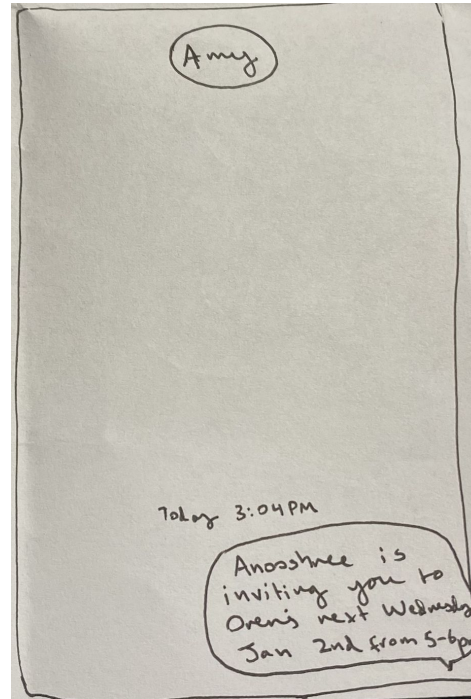 Amy
Today 3:04 PM
Anosshree is
inviting you to
Oren's next Wednesday
Jan 2nd from 5-6pm